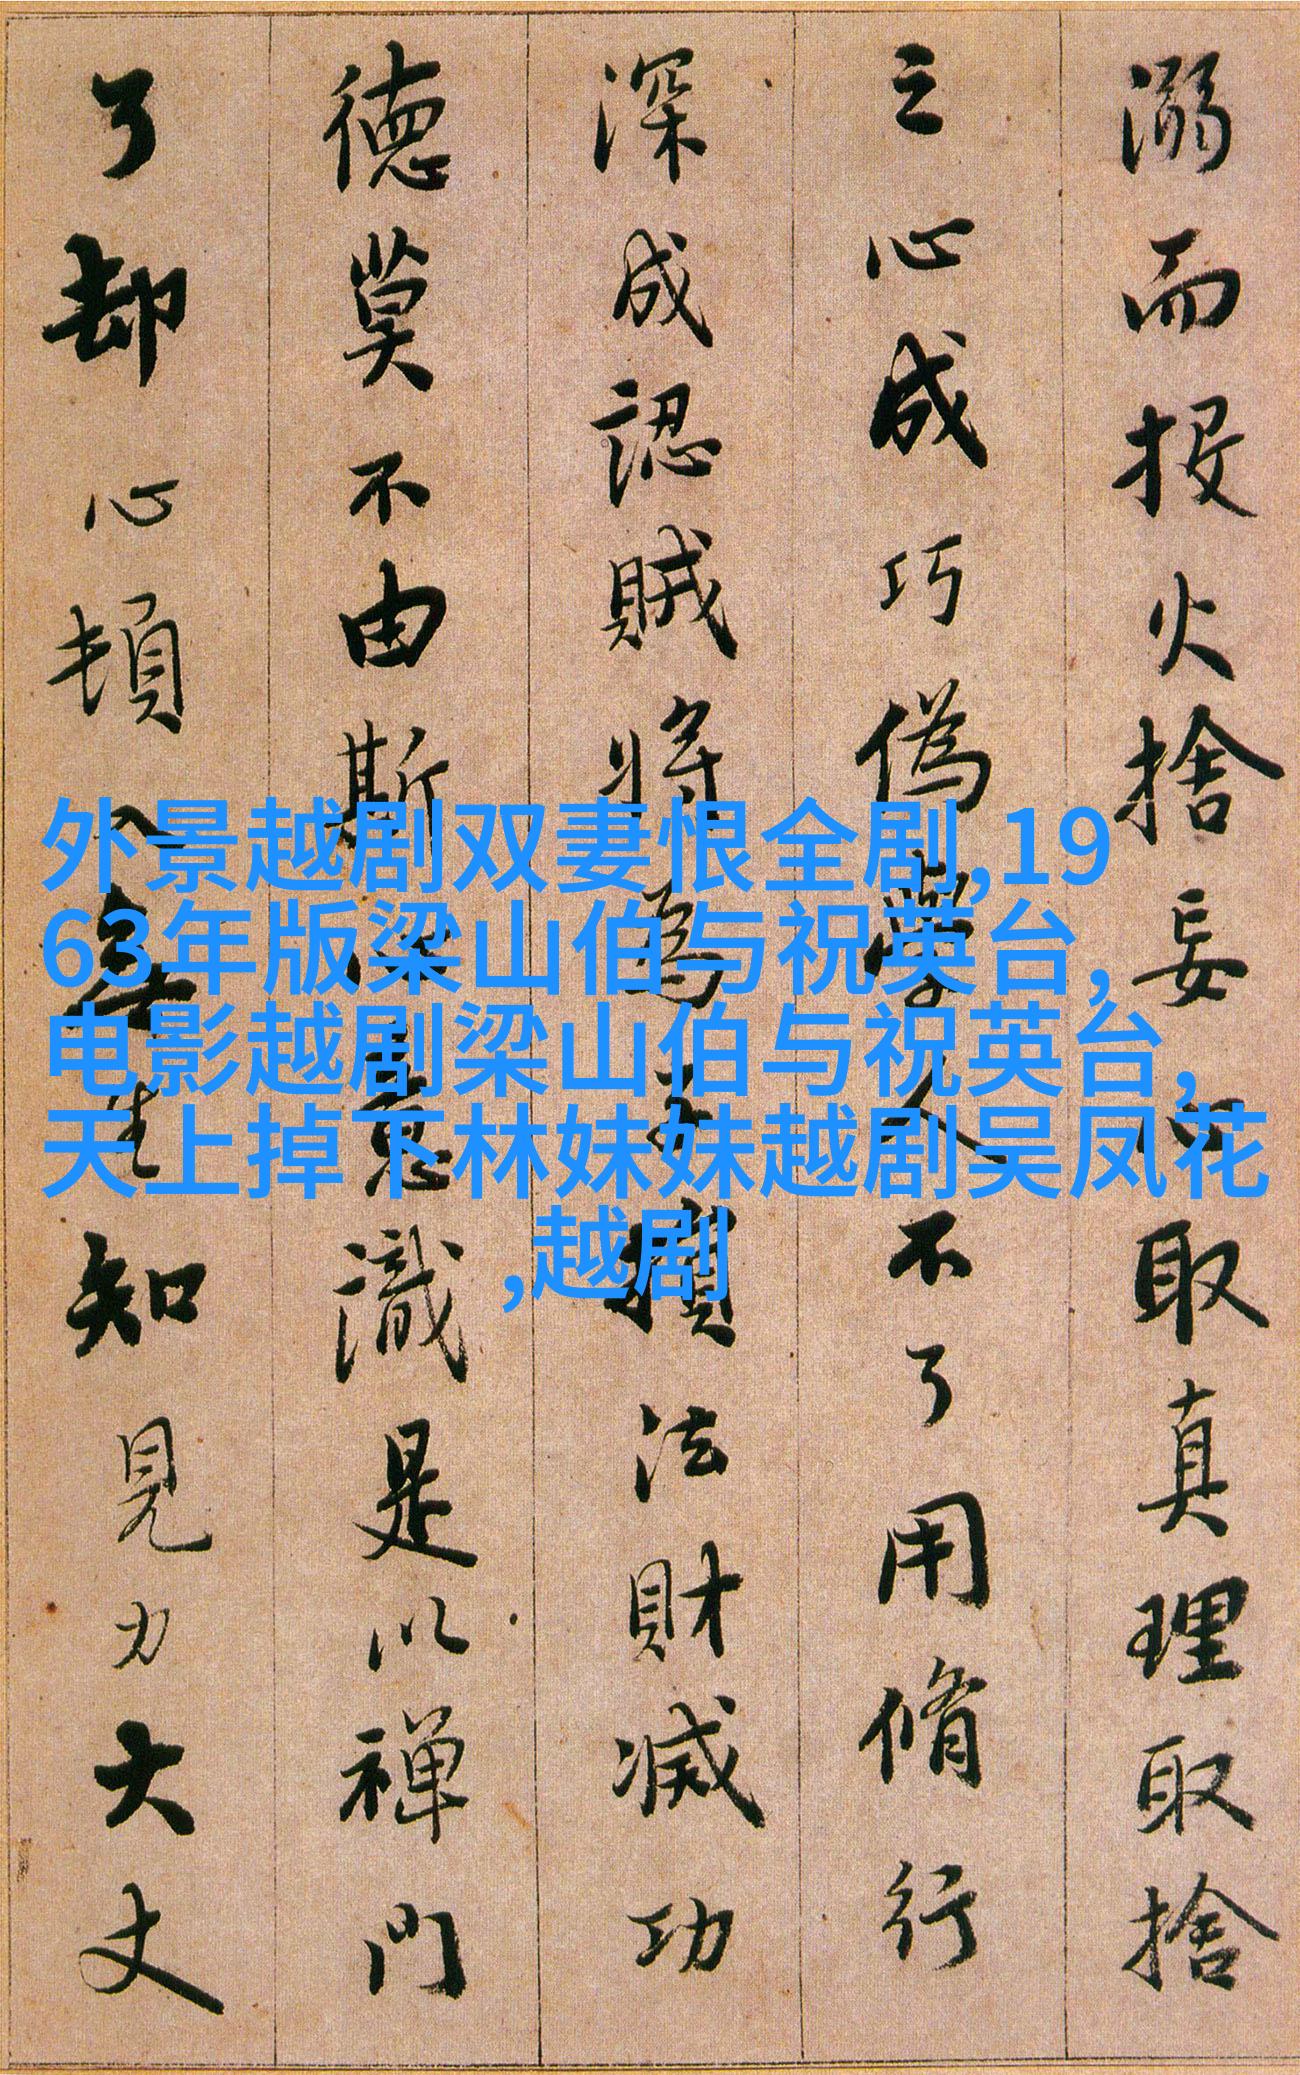 溺而投火捨妄心取真理取捨
之心成巧偽學人不了用脩行
深成認賊將為子損法財滅功
德莫不由斯心意識是以禪門
了却心頓入無生知見力大丈
外景越剧双妻恨全剧,19
63年版梁山伯与祝英台,
电影越剧梁山伯与祝英台,
天上掉下林妹妹越剧吴凤花
,越剧